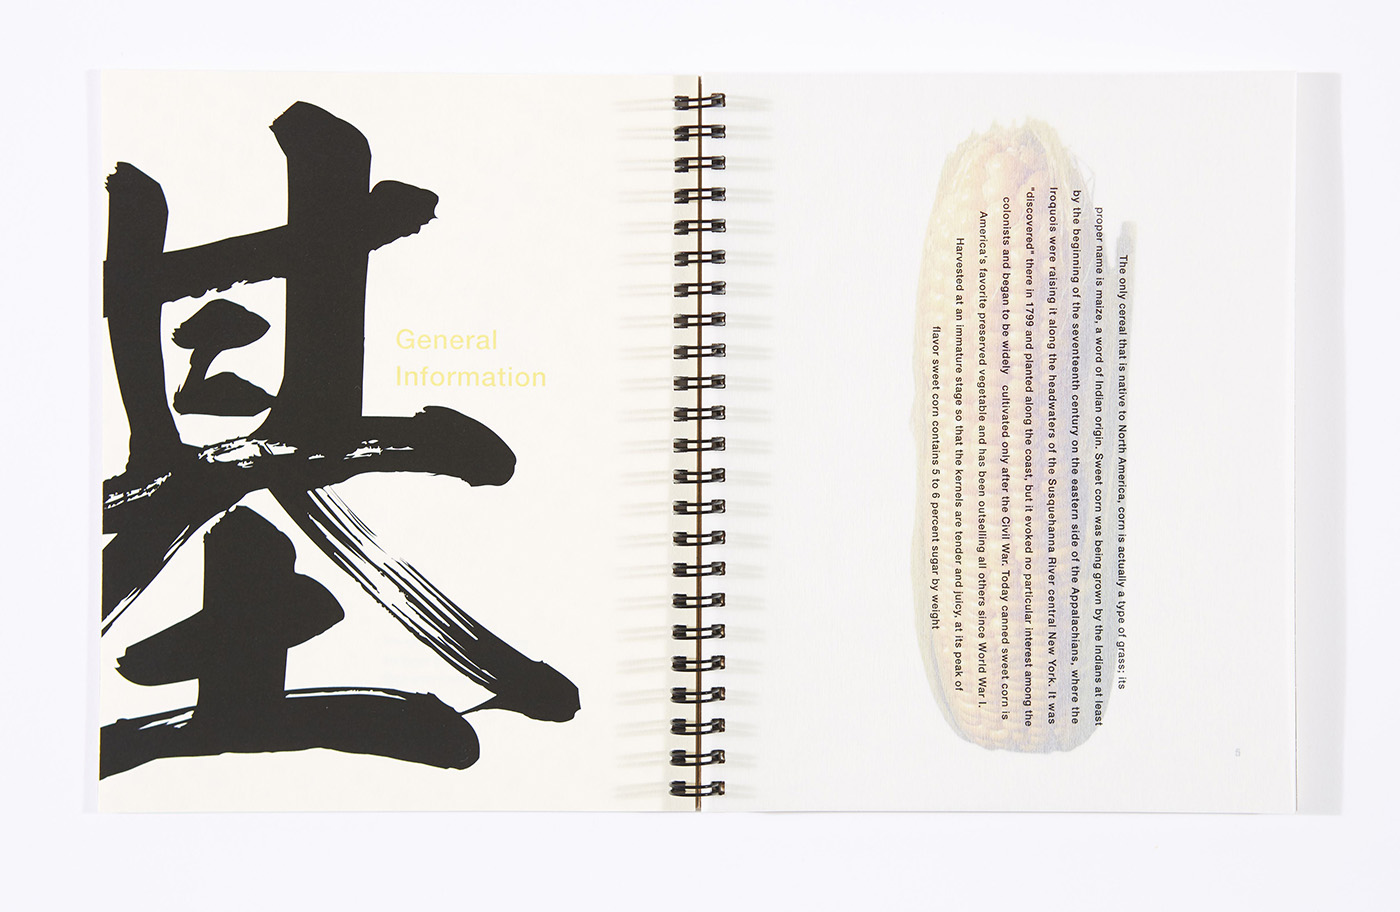 基
General
Information
The only cereal that is native to North America, corn is actually a type of grass; its
proper name is maize, a word of Indian origin. Sweet corn was being grown by the Indians at least
by the beginning of the seventeenth century on the eastern side of the Appalachians, where the
Iroquois were raising it along the headwaters of the Susquehanna River central New York. It was
"discovered" there in 1799 and planted along the coast, but it evoked no particular interest among the
colonists and began to be widely cultivated only after the Civil War. Today canned sweet corn is
America's favorite preserved vegetable and has been outselling all others since World War I.
Harvested at an immature stage so that the kernels are tender and juicy, at its peak of
flavor sweet corn contains 5 to 6 percent sugar by weight
5